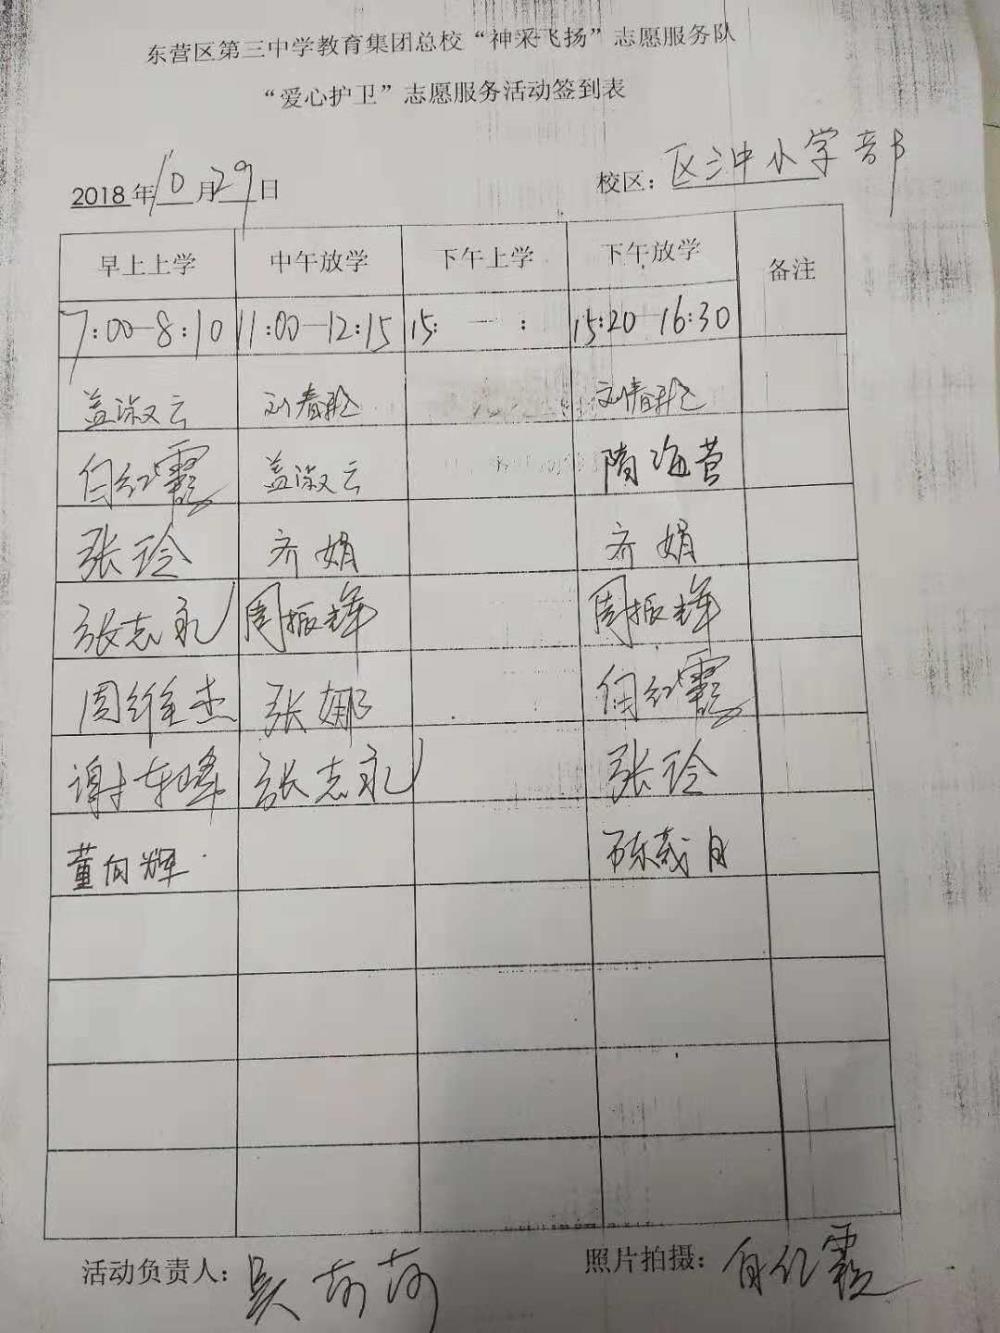 东营区第三中学教育集团总校“神采飞扬”志愿服务队
“爱心护卫”志愿服务活动签到表
2018年10月29日 校区：区三中小学部
早上上学 中午放学 下午上学 下午放学 备注
7:00—8:10 11:00—12:15 15: — : 15:20 16:30
盖淑云 刘春 刘春
白红霞 盖淑云 隋海营
张玲 齐娟 齐娟
张志永 周振辉 周振辉
周维杰 张娜 白红霞
谢东峰 张志永 张玲
董向辉
活动负责人：吴莉莉 照片拍摄：白红霞